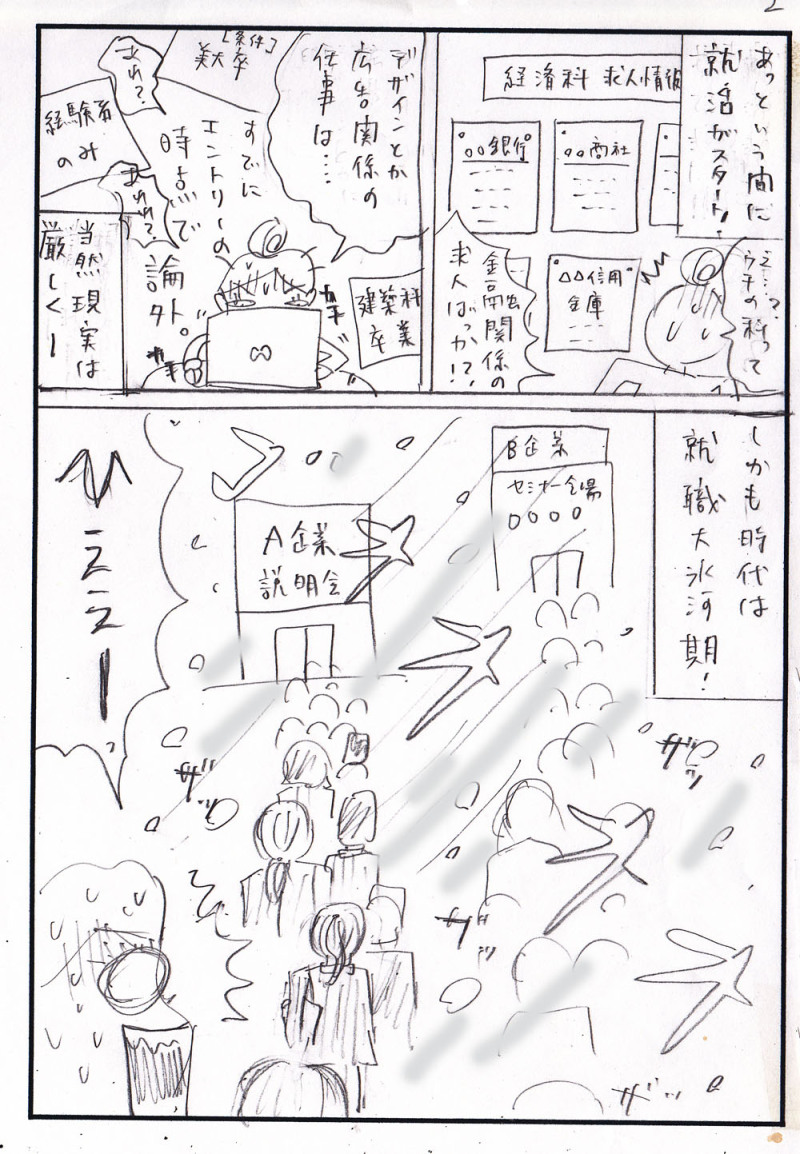 2
あっという間に
就活がスタート!
経済科 求人情報
○○銀行
○○商社
△△信用
金庫
え……?
ウチの科って
金融関係の
求人ばっか!?
デザインとか
広告関係の
仕事は…
[条件]
美大卒
あれ?
経験者
のみ
すでに
エントリーの
時点で
論外。
あれれ?
建築科
卒業
カキ
カキ
当然現実は
厳しくー
しかも時代は
就職大氷河期!
B企業
セミナー会場
○○○○
A企業
説明会
ひええー
ザッ
ザッ
ザッ
ザッ